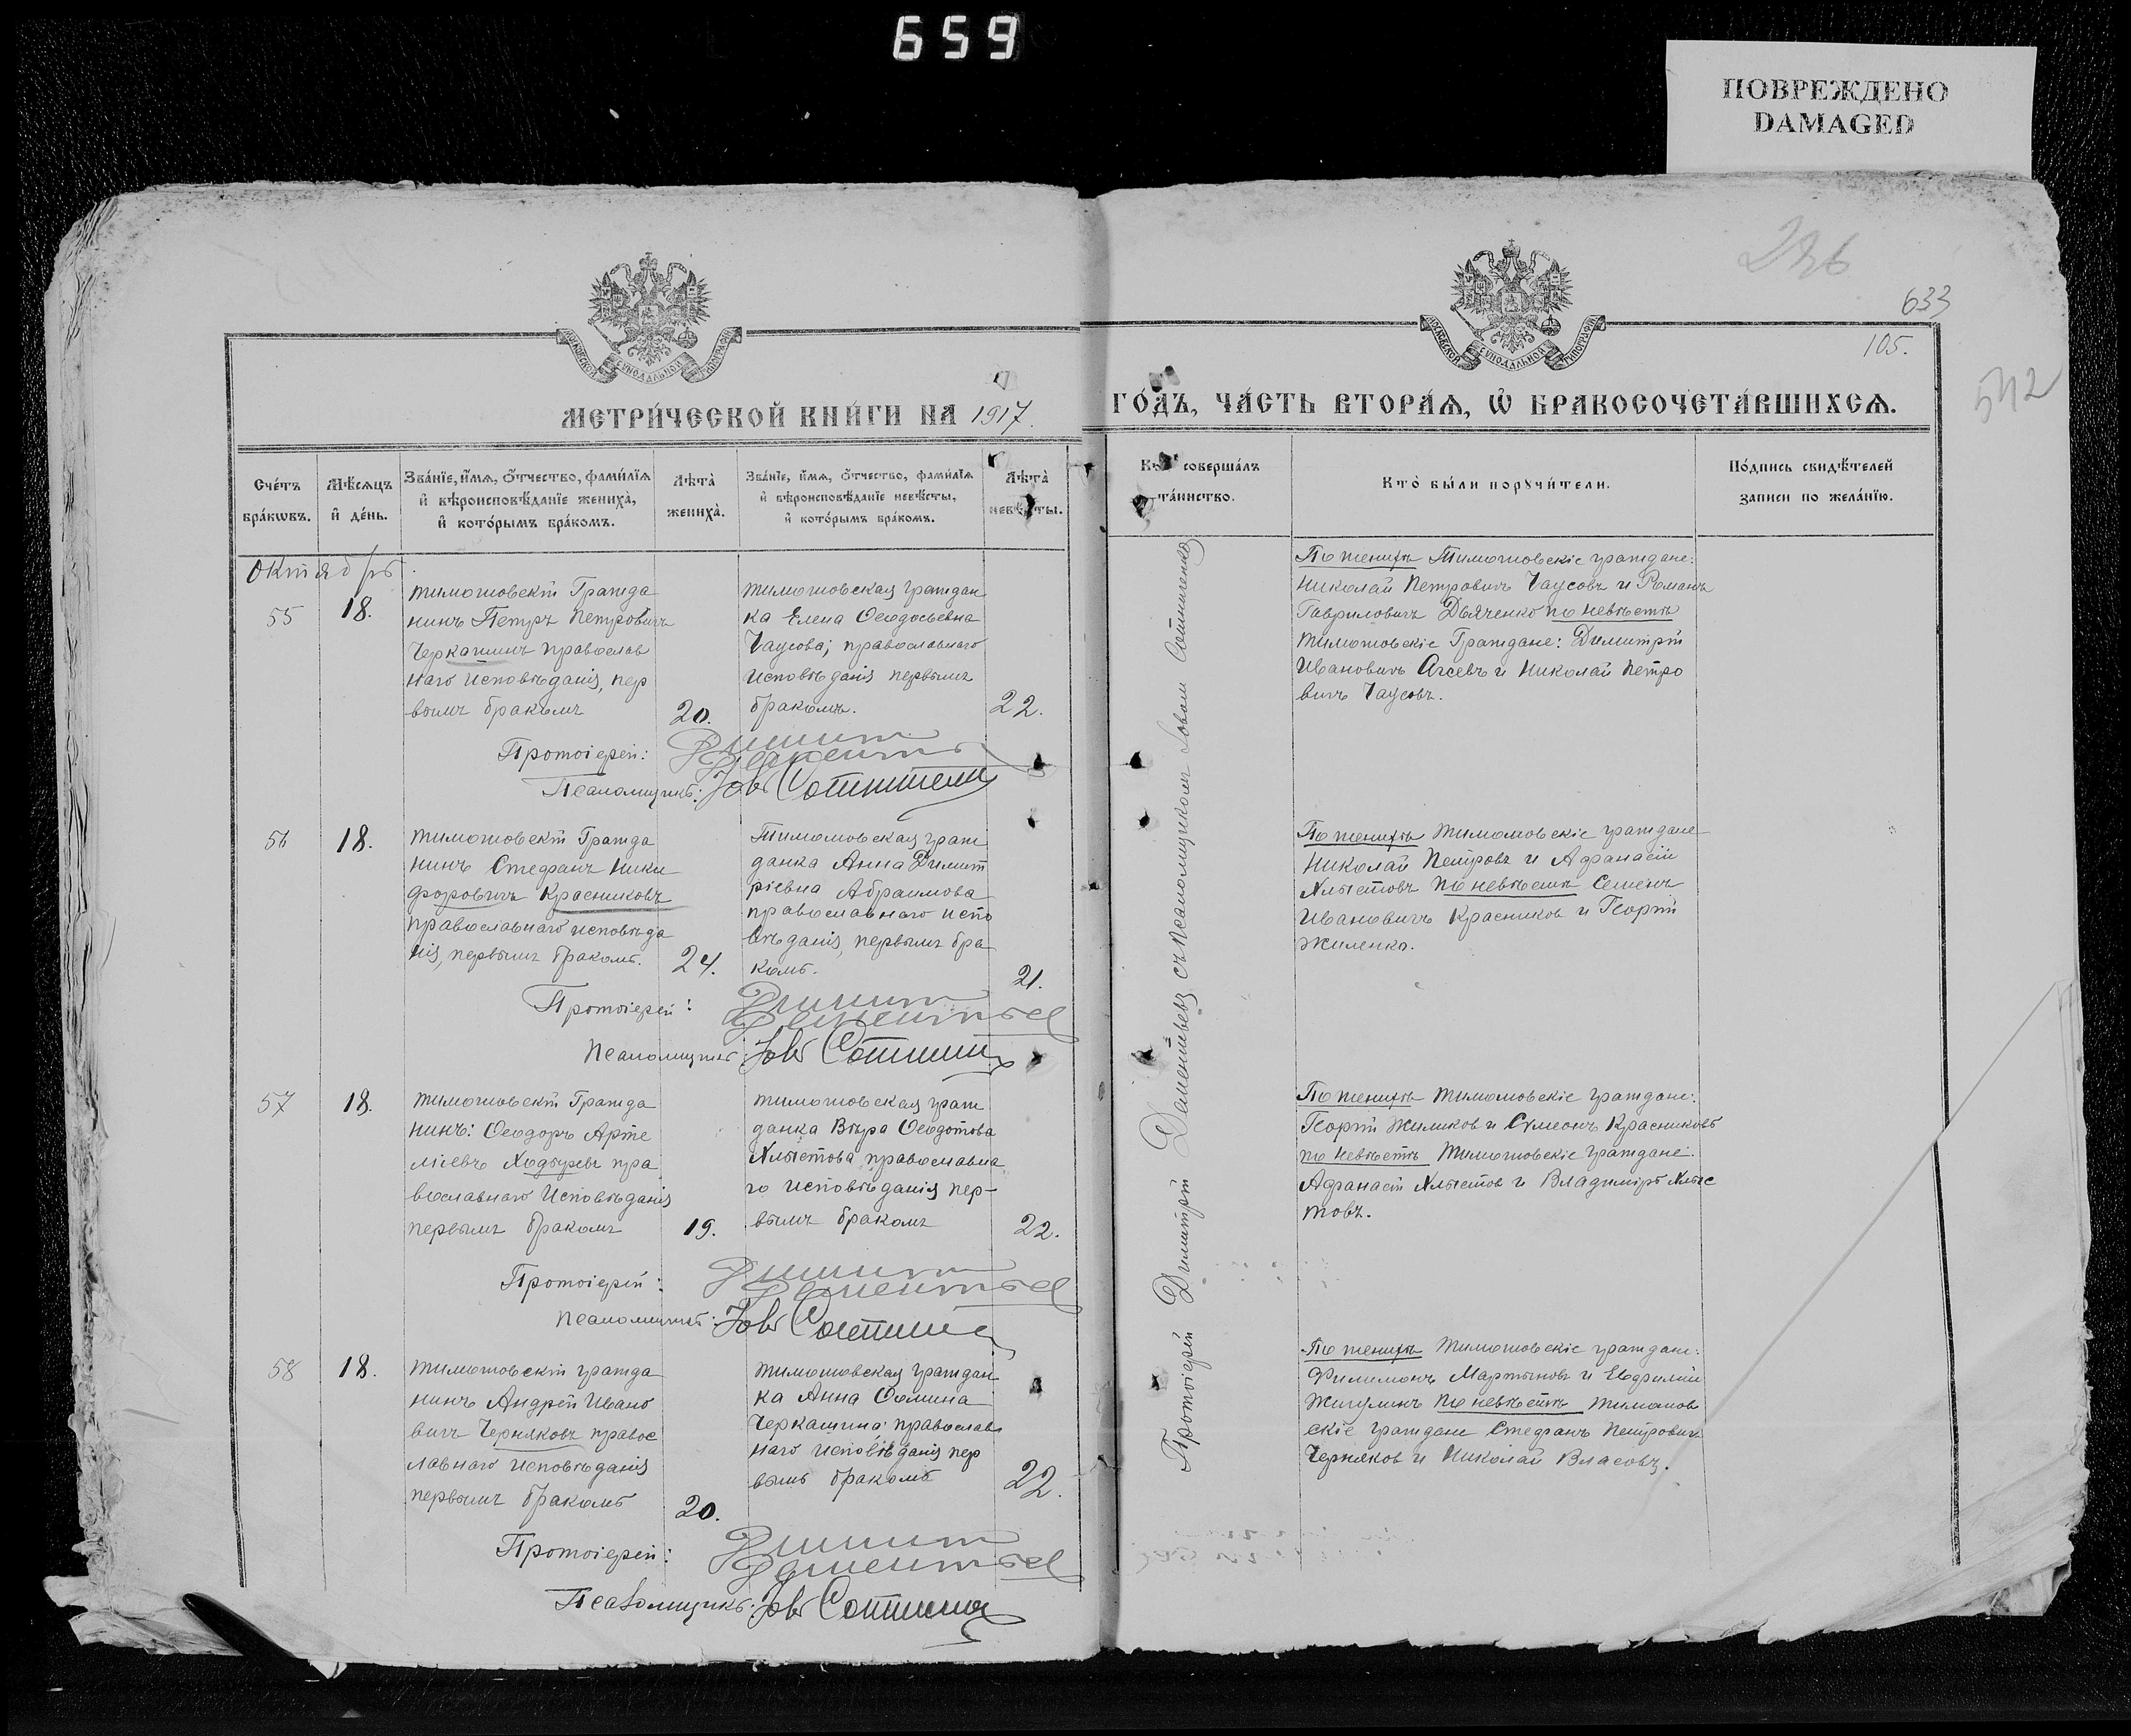 659
ПОВРЕЖДЕНО
DAMAGED
633
105.
МЕТРИ́ЧЕСКОЙ КНИ́ГИ НА 1917.
ГО́ДЪ, ЧА́СТЬ ВТОРА́Я, Ѡ БРАКОСОЧЕТА́ВШИХСЯ.
Сче́тъ бра́кѡвъ.
Мѣ́сяцъ и де́нь.
Зва́нїе, и́мя, ѻ́тчество, фами́лїя
и вѣроисповѣ́данїе жениха̀,
и кото́рымъ бра́комъ.
Лѣта̀ жениха̀.
Зва́нїе, и́мя, ѻ́тчество, фами́лїя
и вѣроисповѣ́данїе невѣ́сты,
и кото́рымъ бра́комъ.
Лѣта̀ невѣ́сты.
Кто̀ соверша́лъ
та́инство.
Кто̀ бы́ли порꙋчи́тели.
По́дпись свидѣ́телей
записи по жела́нїю.
Октябрь
55
18.
Тимошовскій Гражда
нинъ Петръ Петровичъ
Черкашинъ православ
наго исповѣданія, пер
вымъ бракомъ
20.
Тимошовская граждан
ка Елена Ѳеодосьевна
Чаусова; православнаго
исповѣданія первымъ
бракомъ.
22.
По женихѣ Тимошовскіе граждане:
Николай Петровичъ Чаусовъ и Романъ
Гавриловичъ Дьяченко по невѣстѣ
Тимошовскіе Граждане: Димитрій
Ивановичъ Агеевъ и Николай Петро
вичъ Чаусовъ.
Протоіерей:
Псаломщикъ: Іовъ Сотниченко
56
18.
Тимошовскій Гражда
нинъ Стефанъ Ники
форовичъ Красниковъ
православнаго исповѣда
нія, первымъ бракомъ.
24.
Тимошовская граж
данка Анна Димит
ріевна Абраимова
православнаго испо
вѣданія, первымъ бра
комъ.
21.
По женихѣ Тимошовскіе граждане
Николай Петровъ и Афанасій
Хлыстовъ по невѣстѣ Семенъ
Ивановичъ Красников и Георгій
Жиленко.
Протоіерей: Димит
Дементьев
Псаломщикъ: Іовъ Сотниченко
57
18.
Тимошовскій Гражда
нинъ: Ѳеодоръ Арте
міевъ Ходыревъ пра
вославнаго Исповѣданія
первымъ бракомъ
19.
Тимошовская граж
данка Вѣра Ѳеодотова
Хлыстова православна
го исповѣданія пер-
вымъ бракомъ
22.
По женихѣ Тимошовскіе граждане:
Георгій Жиликов и Сумеонъ Красниковъ
по невѣстѣ Тимошовскіе граждане:
Афанасій Хлыстов и Владиміръ Хлыс
товъ.
Протоіерей: Димит
Дементьев
Псаломщикъ: Іовъ Сотниченко
58
18.
Тимошовскій гражда
нинъ Андрей Ивано
вичъ Черняковъ правос
лавнаго исповѣданія
первымъ бракомъ
20.
Тимошовская граждан
ка Анна Ѳомина
Черкашина православ
наго исповѣданія пер
вымъ бракомъ
22.
По женихѣ Тимошовскіе граждане:
Филимонъ Мартынов и Евфимій
Жигулинъ по невѣстѣ Тимошов
скіе граждане Стефанъ Петрович
Черняков и Николай Власовъ.
Протоіерей: Димит
Дементьев
Псаломщикъ: Іовъ Сотниченко
Протоіерей Димитрій Дементьевъ съ псаломщикомъ Іовом Сотниченко